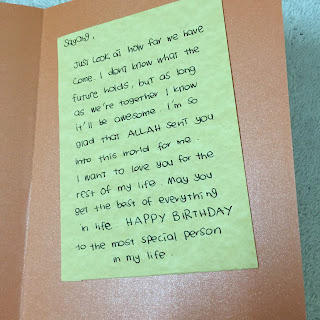 Sayang,
Just look at how far we have
come. I don't know what the
future holds, but as long
as we're together I know
it'll be awesome. I'm so
glad that ALLAH sent you
into this world for me.
I want to love you for the
rest of my life. May you
get the best of everything
in life. HAPPY BIRTHDAY
to the most special person
in my life.